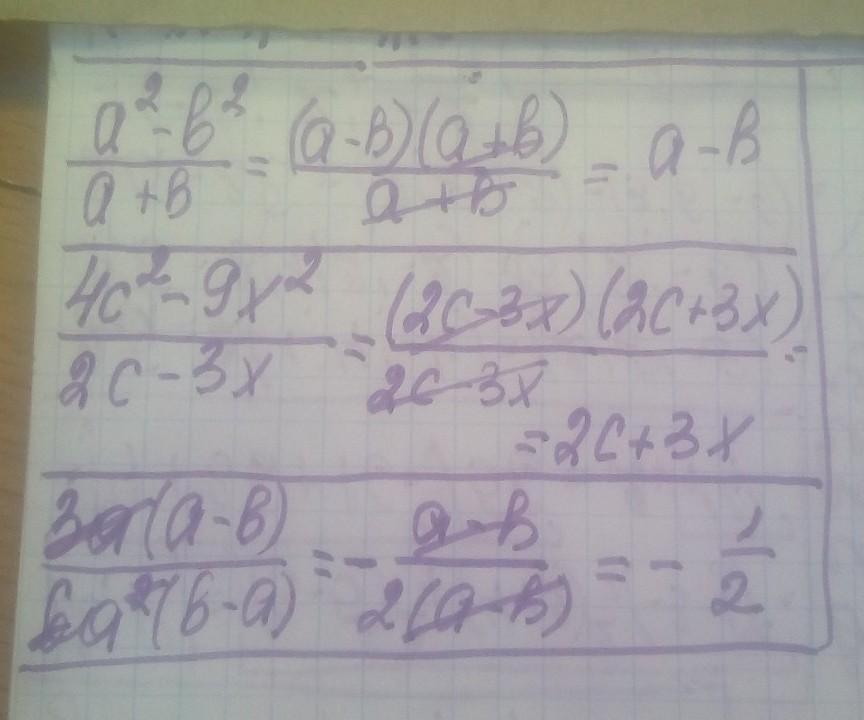 a²-b²/a+b = (a-b)(a+b)/a+b = a-b
4c²-9x²/2c-3x = (2c-3x)(2c+3x)/2c-3x =
=2c+3x
3a(a-b)/6a²(b-a) = - a-b/2(a-b) = - 1/2